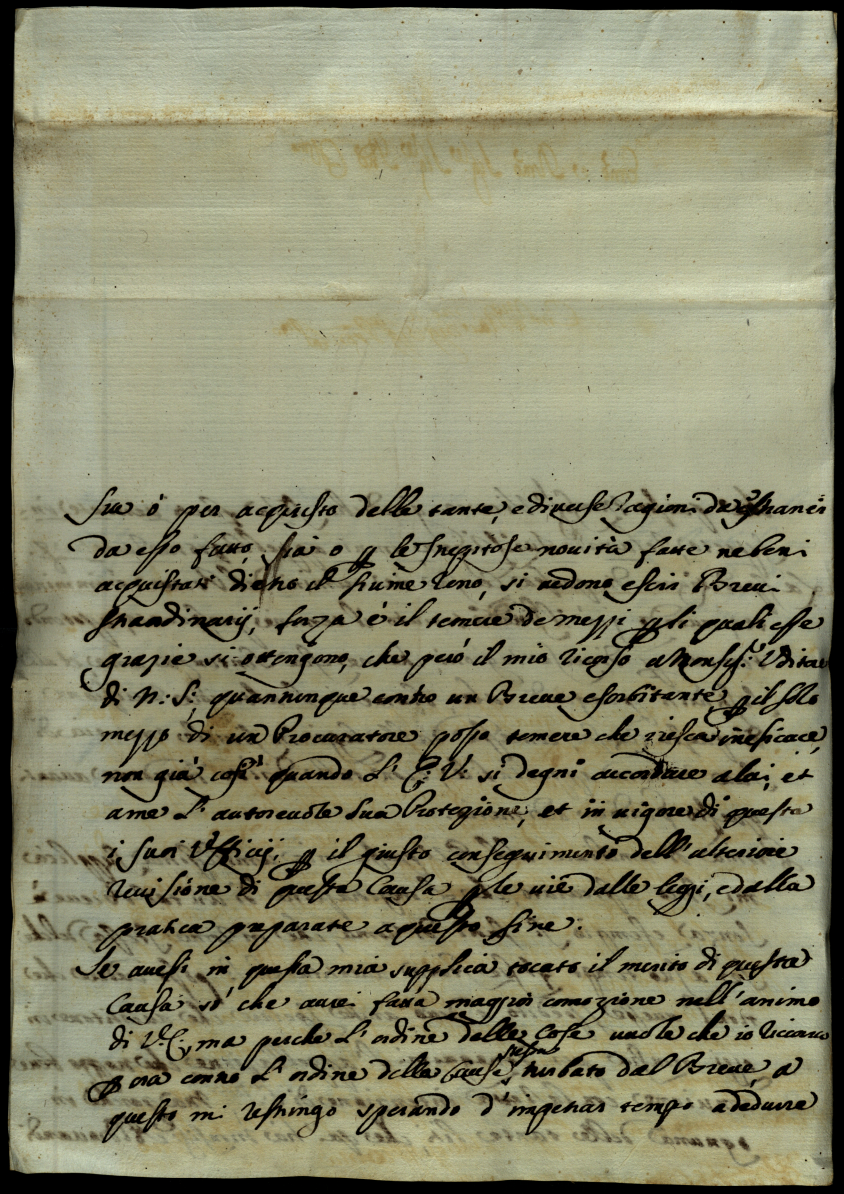 Sue ò per acquisto delle tante, e diverse ragioni da
da esso fatto, sia o p le novità fatte ne beni
acquistati dietro il fiume Reno, si vedono esciri Brevi
straordinarij, forza è il temere de mezzi p li quali esse
grazie si ottengono, che però il mio ricorso a Monsig.r Uditore
di N: S: quantunque contro un Breve esorbitante p il solo
mezzo di un Procuratore posso temere che riesca inefficace,
non già così quando L' E: V: si degni accordare a lai, et
ame L' autorevole Sua Protezione, et in vigore di questa
i Suoi Ufficij, p il giusto conseguimento dell' alteriore
revisione di questa Causa p le vie dalle leggi, e dalla
pratica preparate a questo fine.
Se avesi in questa mia supplica tocato il merito di questa
Causa so' che avrei fatta maggior comozione nell' animo
di V. E, ma perche L' ordine delle Cose vuole che io riccorra
p ora contro L' ordine della Causa turbato dal Breve, a
questo mi restringo sperando d' impetrar tempo a dedurre